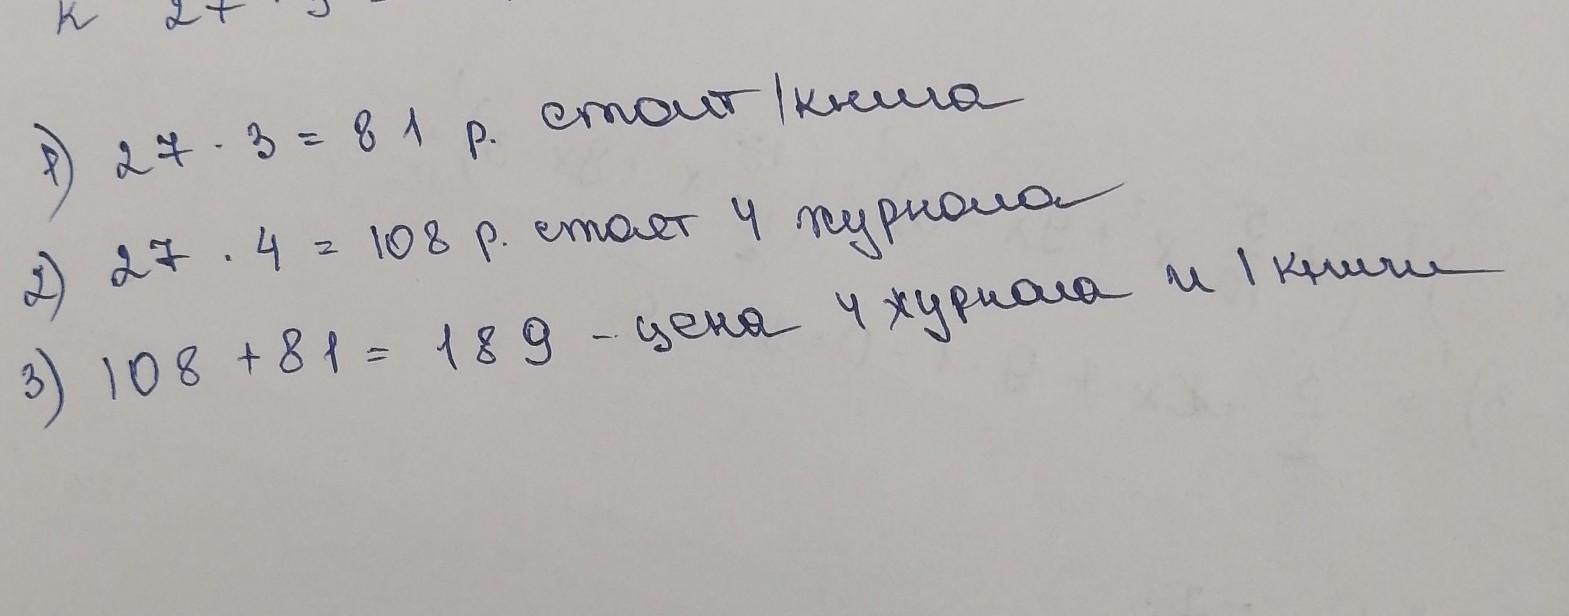 к 27 · 3
1) 27 · 3 = 81 р. стоит 1 книга
2) 27 · 4 = 108 р. стоят 4 журнала
3) 108 + 81 = 189 - цена 4 журнала и 1 книги